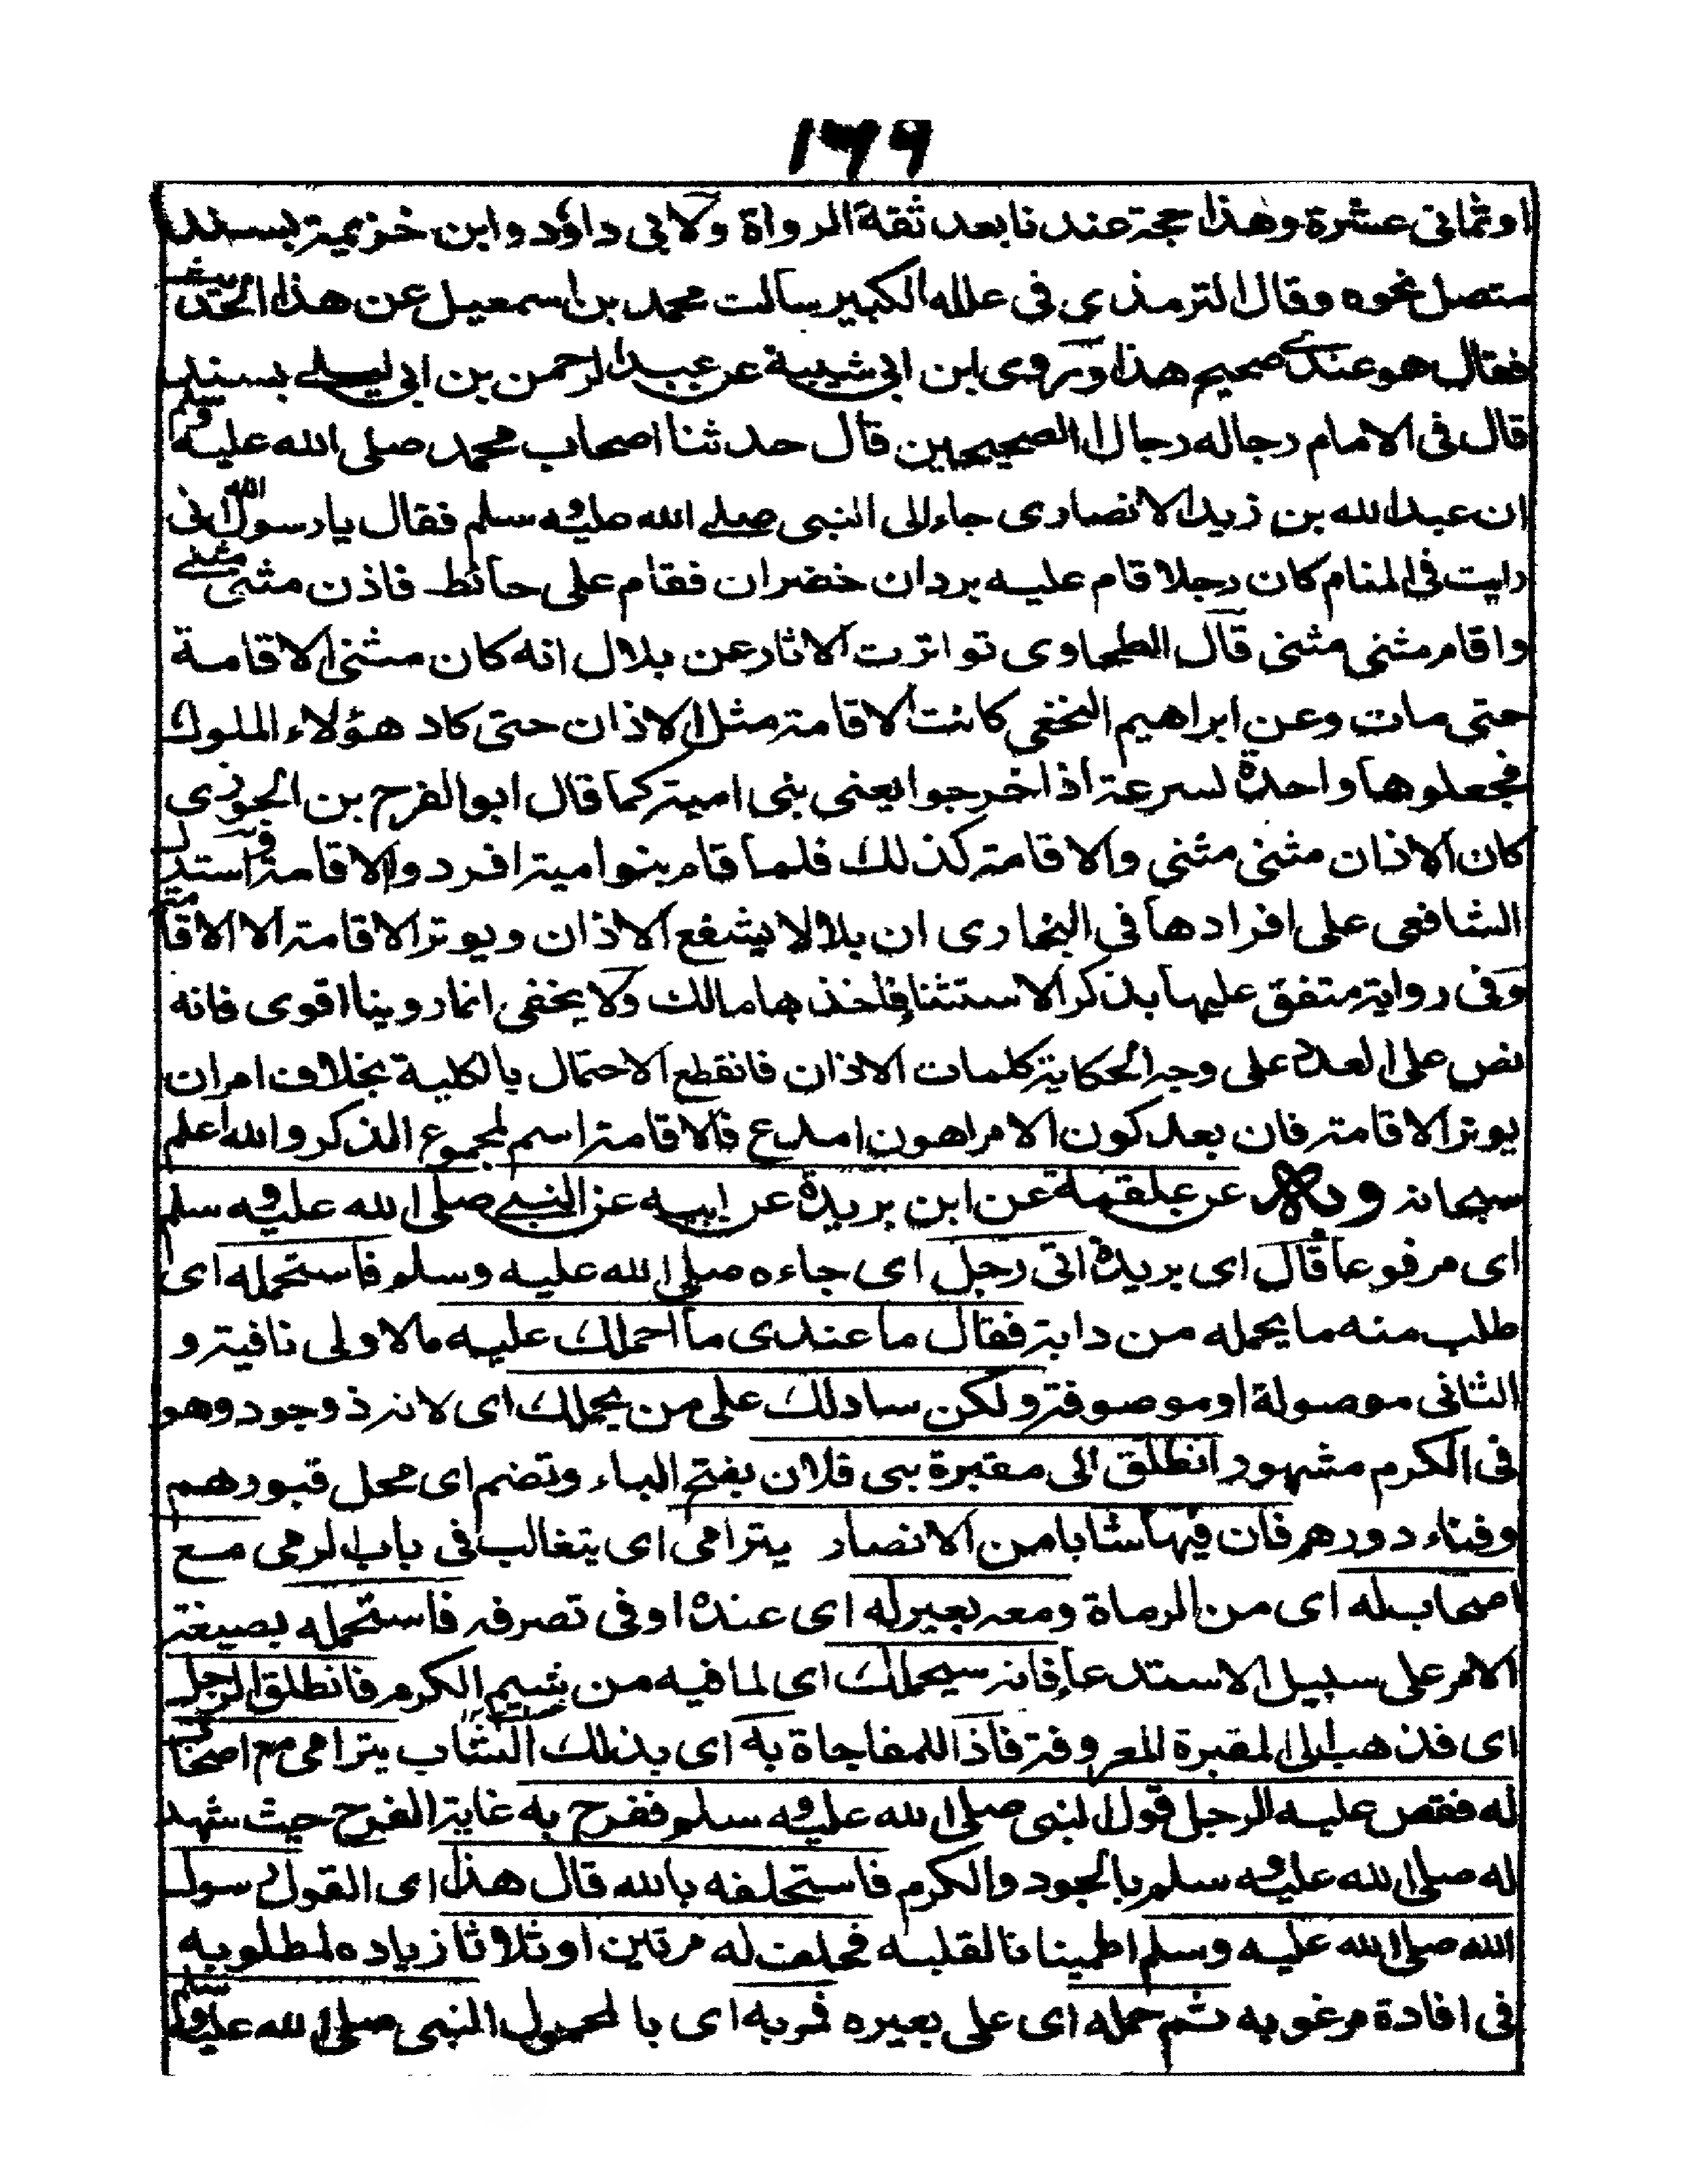 ١٦٩
او ثماني عشرة وهذا حجة عندنا بعد ثقة الرواة ولابي داؤد وابن خزيمة بسند
متصل نحوه وقال الترمذي في علله الكبير سالت محمد بن اسمعيل عن هذا الحديث
فقال هو عندي صحيح هذا وروى ابن ابي شيبة عن عبد الرحمن بن ابي ليلى بسند
قال في الامام رجاله رجال الصحيحين قال حدثنا اصحاب محمد صلى الله عليه وسلم
ان عبد الله بن زيد الانصاري جاء الى النبي صلى الله عليه وسلم فقال يا رسول الله اني
رايت في المنام كان رجلا قام عليه بردان خضران فقام على حائط فاذن مثنى مثنى
واقام مثنى مثنى قال الطحاوى تواترت الاثار عن بلال انه كان مثنى الاقامة
حتى مات وعن ابراهيم النخعي كانت الاقامة مثل الاذان حتى كاد هؤلاء الملوك
فجعلوها واحدة لسرعة اذا خرجوا يعنى بنى امية كما قال ابو الفرح بن الجوزى
كان الاذان مثنى مثنى والاقامة كذلك فلما قام بنو امية افردوا الاقامة واستدل
الشافعى على افرادها في البخارى ان بلالا يشفع الاذان ويوتر الاقامة الا الاقامة
وفى رواية متفق عليها بذكر الاستثناء فاخذ بها مالك ولا يخفى انما روينا اقوى فانه
نص على العدد على وجه الحكاية كلمات الاذان فانقطع الاحتمال بالكلية بخلاف امر ان
يوتر الاقامة فان بعد كون الامر اهون امدع فالاقامة اسم لمجموع الذكر والله اعلم
سبحانه وبه عن علقمة عن ابن بريدة عن ابيه عن النبي صلى الله عليه وسلم
اى مرفوعا قال اى بريدة اتى رجل اى جاءه صلى الله عليه وسلم فاستحمله اى
طلب منه ما يحمله من دابة فقال ما عندى ما احملك عليه مالاولى نافية و
الثانى موصولة او موصوفة ولكن سادلك على من يحملك اى لانه ذو جود وهو
فى الكرم مشهور انطلق الى مقبرة بنى فلان بفتح الباء وتضم اى محل قبورهم
وفناء دورهم فان فيها شابا من الانصار يترامى اى يتغالب فى باب الرمى مع
اصحاب له اى من الرماة ومعه بعير له اى عنده او فى تصرفه فاستحمله بصيغة
الامر على سبيل الاستدعاء فانه سيحملك اى لما فيه من شيم الكرم فانطلق الرجل
اى فذهب الى المقبرة المعروفة فاذا للمفاجاة به اى بذلك الشاب يترامى مع اصحاب
له فقص عليه الرجل قول النبى صلى الله عليه وسلم ففرح به غاية الفرح حيث شهد
له صلى الله عليه وسلم بالجود والكرم فاستحلفه بالله قال هذا اى القول رسول
الله صلى الله عليه وسلم اطمينانا لقلبه فحلف له مرتين او ثلاثا زياده لمطلوبه
فى افادة مرغوبه ثم حمله اى على بعيره فربه اى بالمحمول النبى صلى الله عليه وسلم